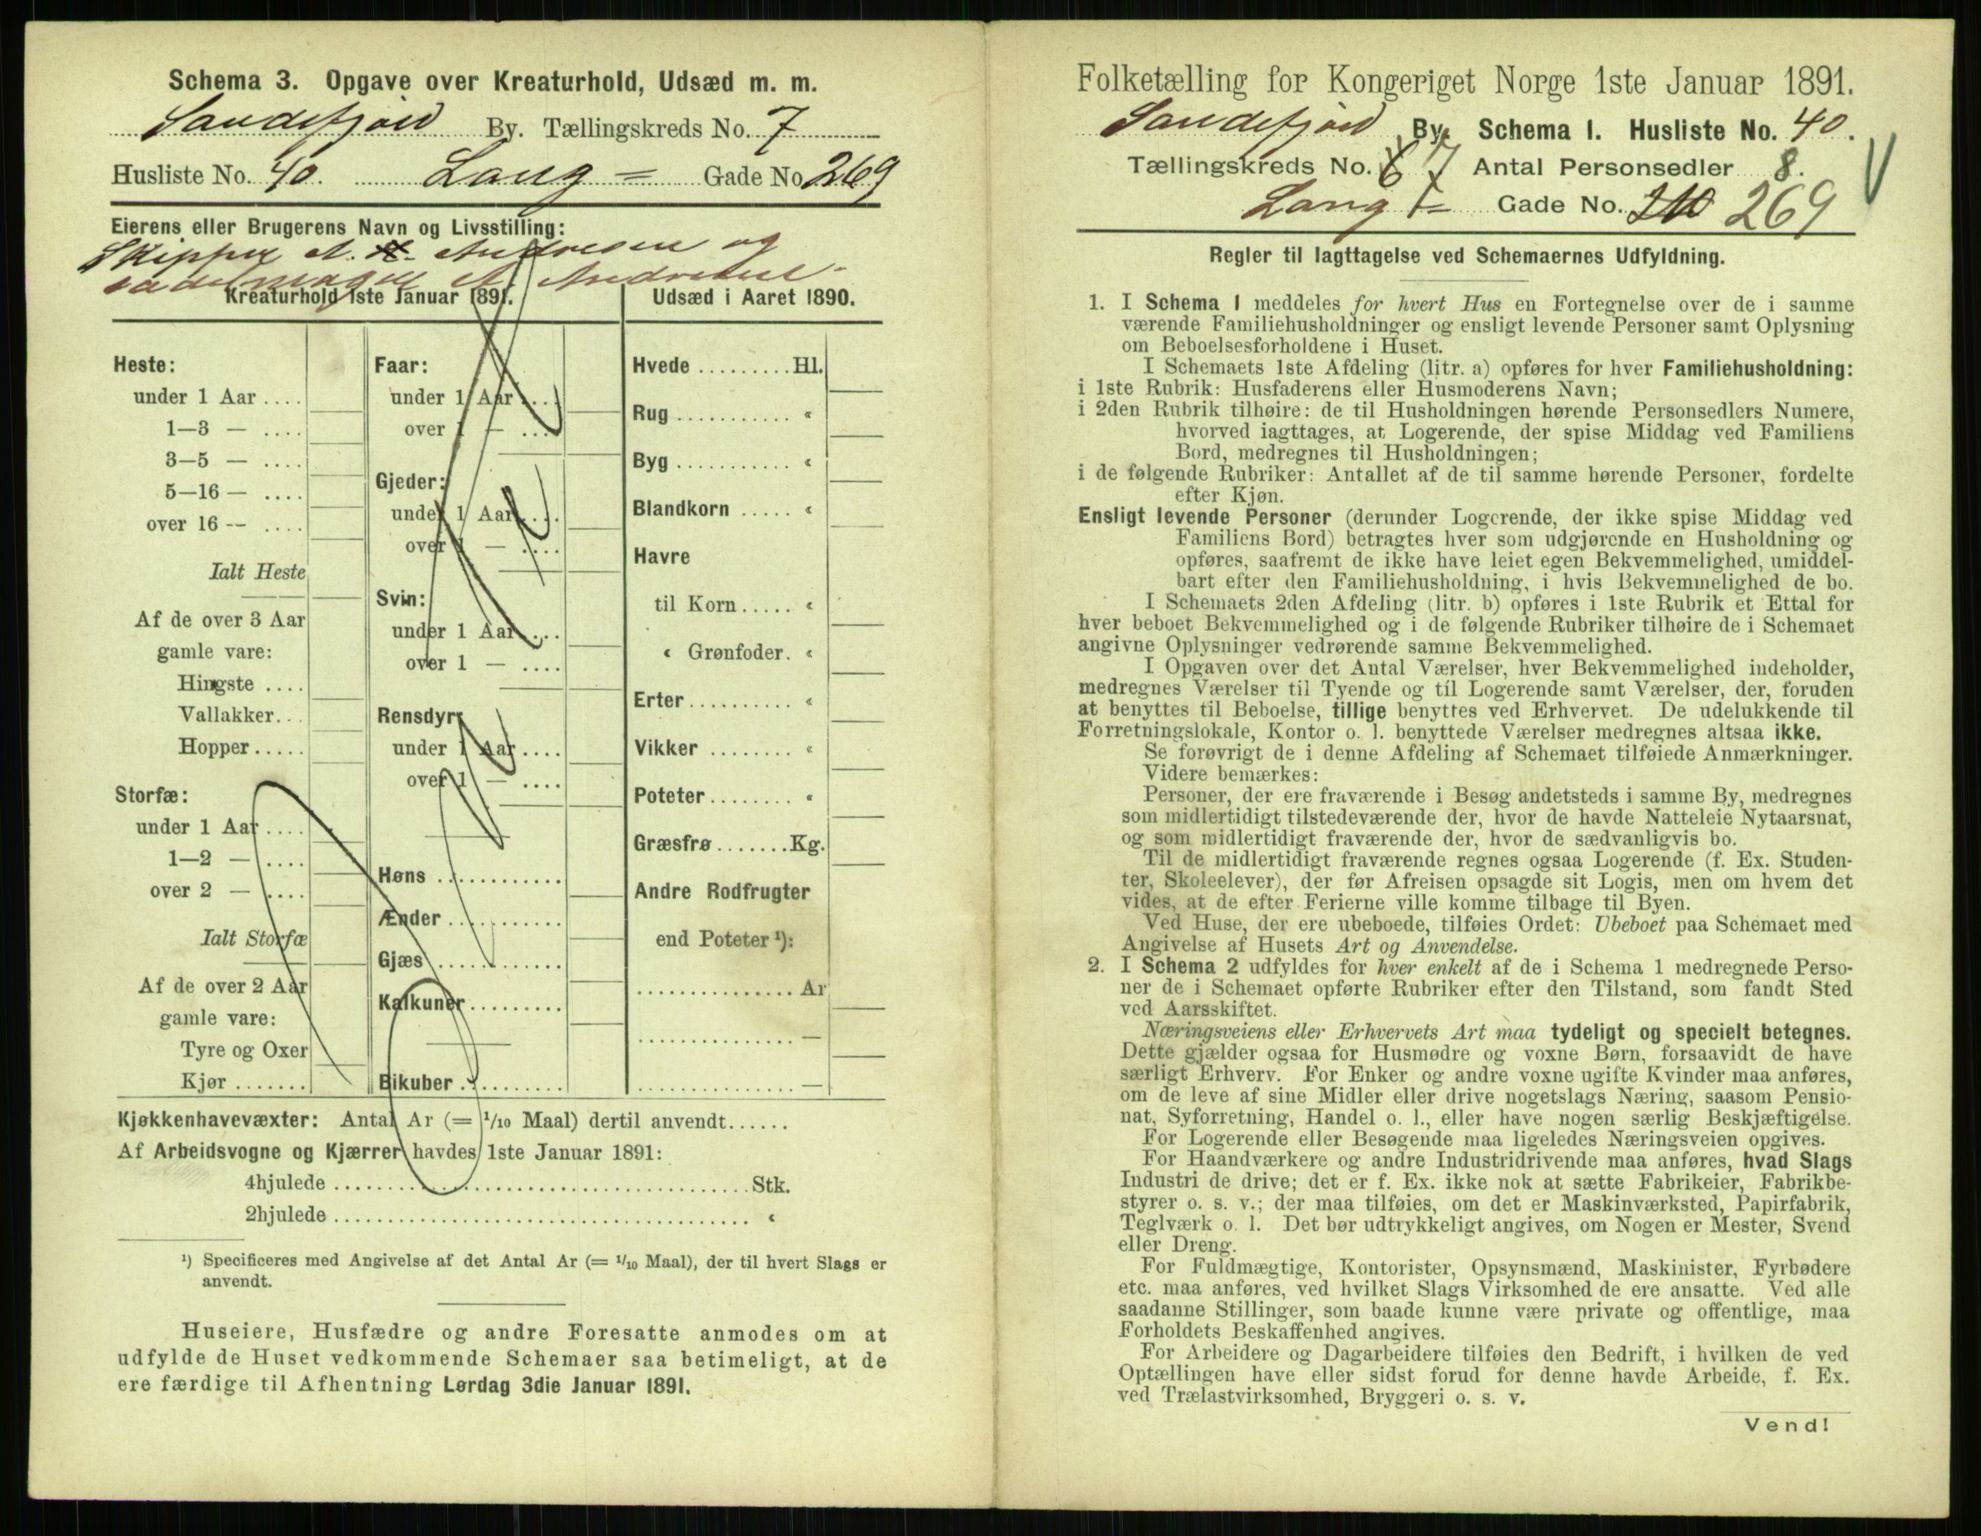 Schema 3. Opgave over Kreaturhold, Udsæd m. m.
Sandefjord By. Tællingskreds No. 7
Husliste No. 40. Lang = Gade No 269
Eierens eller Brugerens Navn og Livsstilling:
Skipper A. Andresen og
sadelmager A. Andresen
Kreaturhold 1ste Januar 1891.
Heste:
under 1 Aar ....
1—3 — ....
3—5 — ....
5—16 — ....
over 16 -- ....
Ialt Heste
Af de over 3 Aar
gamle vare:
Hingste ....
Vallakker...
Hopper.....
Storfæ:
under 1 Aar ....
1—2 — ....
over 2 — ....
Ialt Storfæ
Af de over 2 Aar
gamle vare:
Tyre og Oxer
Kjør .......
Faar:
under 1 Aar ....
over 1 — ....
Gjeder:
under 1 Aar ....
over 1 — ....
Svin:
under 1 Aar ....
over 1 — ....
Rensdyr:
under 1 Aar ....
over 1 — ....
Høns ............
Ænder ...........
Gjæs ............
Kalkuner.........
Bikuber ..........
Udsæd i Aaret 1890.
Hvede .........Hl.
Rug ........... «
Byg ........... «
Blandkorn ..... «
Havre
til Korn..... «
« Grønfoder. «
Erter.......... «
Vikker ........ «
Poteter........ «
Græsfrø .......Kg.
Andre Rodfrugter
end Poteter ¹):
............... Ar
............... —
............... —
Kjøkkenhavevæxter: Antal Ar (= 1/10 Maal) dertil anvendt......
Af Arbeidsvogne og Kjærrer havdes 1ste Januar 1891:
4hjulede ........................................Stk.
2hjulede ........................................ «
¹) Specificeres med Angivelse af det Antal Ar (= 1/10 Maal), der til hvert Slags er
anvendt.
Huseiere, Husfædre og andre Foresatte anmodes om at
udfylde de Huset vedkommende Schemaer saa betimeligt, at de
ere færdige til Afhentning Lørdag 3die Januar 1891.
Folketælling for Kongeriget Norge 1ste Januar 1891.
Sandefjord By. Schema 1. Husliste No. 40.
Tællingskreds No. 6 7 Antal Personsedler 8.
Lang = Gade No. 269
Regler til Iagttagelse ved Schemaernes Udfyldning.
1. I Schema 1 meddeles for hvert Hus en Fortegnelse over de i samme
værende Familiehusholdninger og ensligt levende Personer samt Oplysning
om Beboelsesforholdene i Huset.
I Schemaets 1ste Afdeling (litr. a) opføres for hver Familiehusholdning:
i 1ste Rubrik: Husfaderens eller Husmoderens Navn;
i 2den Rubrik tilhøire: de til Husholdningen hørende Personsedlers Numere,
hvorved iagttages, at Logerende, der spise Middag ved Familiens
Bord, medregnes til Husholdningen;
i de følgende Rubriker: Antallet af de til samme hørende Personer, fordelte
efter Kjøn.
Ensligt levende Personer (derunder Logerende, der ikke spise Middag ved
Familiens Bord) betragtes hver som udgjørende en Husholdning og
opføres, saafremt de ikke have leiet egen Bekvemmelighed, umiddel-
bart efter den Familiehusholdning, i hvis Bekvemmelighed de bo.
I Schemaets 2den Afdeling (litr. b) opføres i 1ste Rubrik et Ettal for
hver beboet Bekvemmelighed og i de følgende Rubriker tilhøire de i Schemaet
angivne Oplysninger vedrørende samme Bekvemmelighed.
I Opgaven over det Antal Værelser, hver Bekvemmelighed indeholder,
medregnes Værelser til Tyende og til Logerende samt Værelser, der, foruden
at benyttes til Beboelse, tillige benyttes ved Erhvervet. De udelukkende til
Forretningslokale, Kontor o. l. benyttede Værelser medregnes altsaa ikke.
Se forøvrigt de i denne Afdeling af Schemaet tilføiede Anmærkninger.
Videre bemærkes:
Personer, der ere fraværende i Besøg andetsteds i samme By, medregnes
som midlertidigt tilstedeværende der, hvor de havde Natteleie Nytaarsnat,
og som midlertidigt fraværende der, hvor de sædvanligvis bo.
Til de midlertidigt fraværende regnes ogsaa Logerende (f. Ex. Studen-
ter, Skoleelever), der før Afreisen opsagde sit Logis, men om hvem det
vides, at de efter Ferierne ville komme tilbage til Byen.
Ved Huse, der ere ubeboede, tilføies Ordet: Ubeboet paa Schemaet med
Angivelse af Husets Art og Anvendelse.
2. I Schema 2 udfyldes for hver enkelt af de i Schema 1 medregnede Perso-
ner de i Schemaet opførte Rubriker efter den Tilstand, som fandt Sted
ved Aarsskiftet.
Næringsveiens eller Erhvervets Art maa tydeligt og specielt betegnes.
Dette gjælder ogsaa for Husmødre og voxne Børn, forsaavidt de have
særligt Erhverv. For Enker og andre voxne ugifte Kvinder maa anføres,
om de leve af sine Midler eller drive nogetslags Næring, saasom Pensio-
nat, Syforretning, Handel o. l., eller have nogen særlig Beskjæftigelse.
For Logerende eller Besøgende maa ligeledes Næringsveien opgives.
For Haandværkere og andre Industridrivende maa anføres, hvad Slags
Industri de drive; det er f. Ex. ikke nok at sætte Fabrikeier, Fabrikbe-
styrer o. s. v.; der maa tilføies, om det er Maskinværksted, Papirfabrik,
Teglværk o. l. Det bør udtrykkeligt angives, om Nogen er Mester, Svend
eller Dreng.
For Fuldmægtige, Kontorister, Opsynsmænd, Maskinister, Fyrbødere
etc. maa anføres, ved hvilket Slags Virksomhed de ere ansatte. Ved alle
saadanne Stillinger, som baade kunne være private og offentlige, maa
Forholdets Beskaffenhed angives.
For Arbeidere og Dagarbeidere tilføies den Bedrift, i hvilken de ved
Optællingen have eller sidst forud for denne havde Arbeide, f. Ex.
ved Trælastvirksomhed, Bryggeri o. s. v.
Vend!